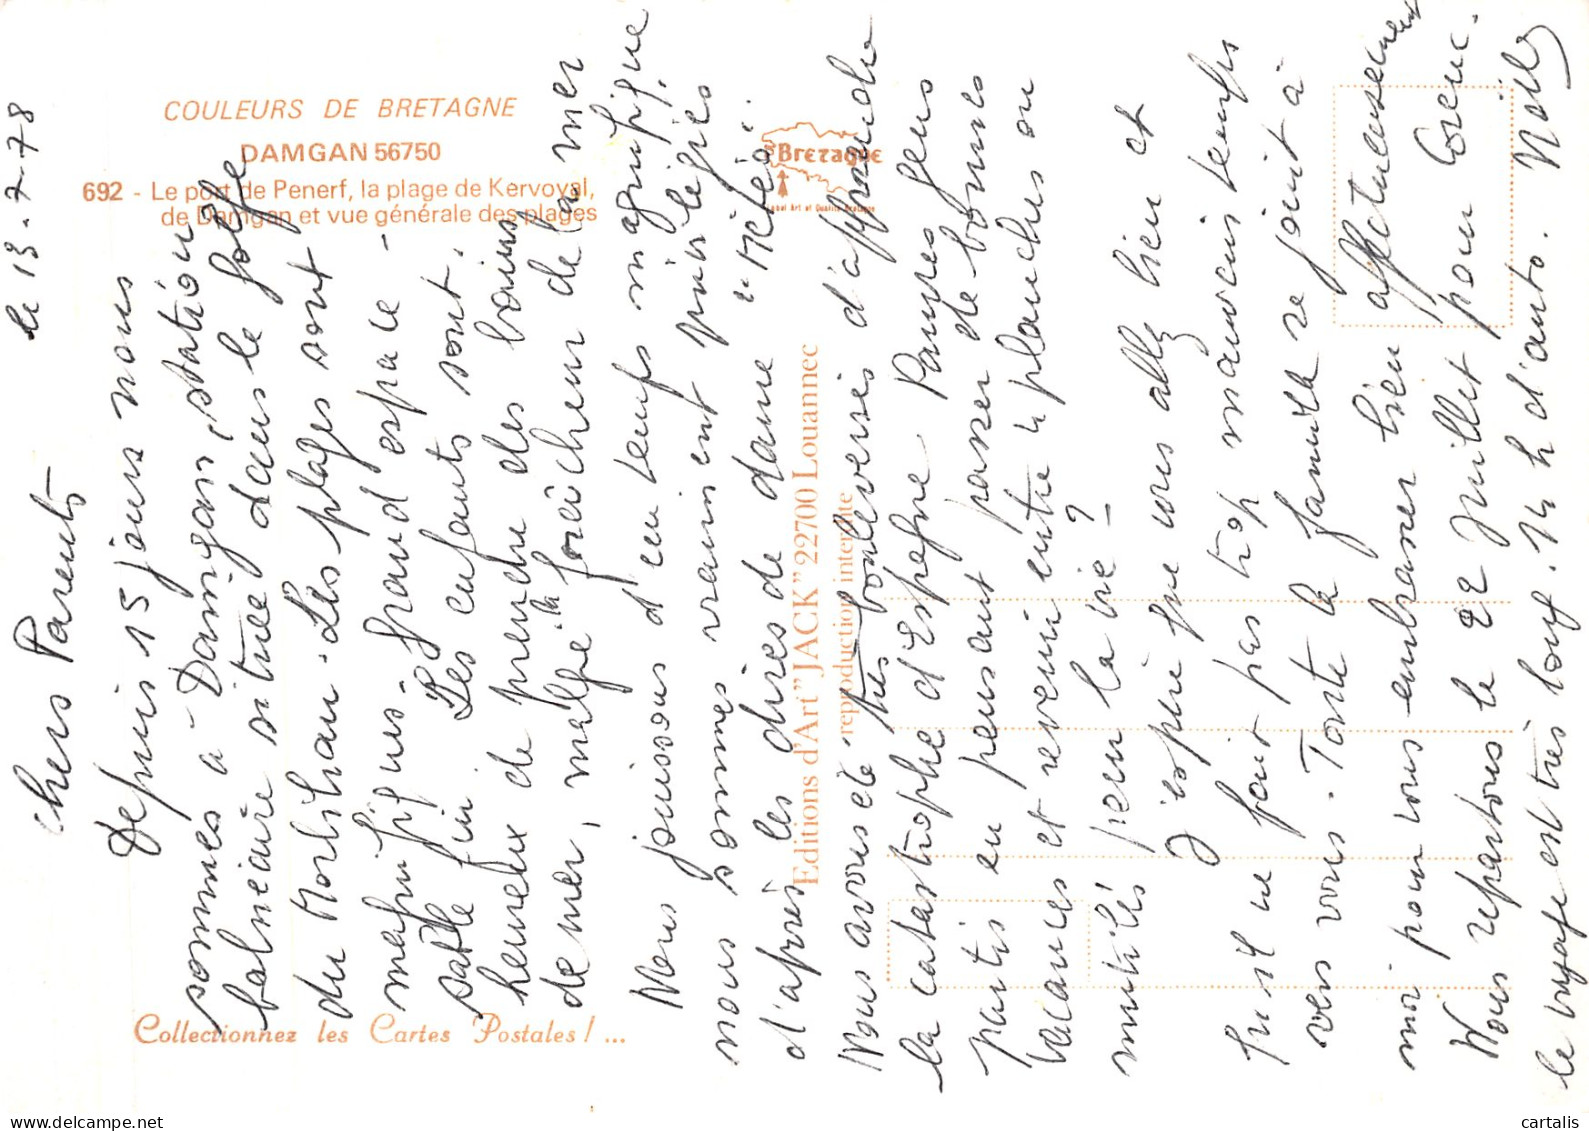 COULEURS DE BRETAGNE
DAMGAN 56750
692 - Le port de Penerf, la plage de Kervoyal,
de Damgan et vue générale des plages
Bretagne
Label Art et Qualité Bretagne
Editions d'Art "JACK" 22700 Louannec
reproduction interdite
Collectionnez les Cartes Postales ! ...
le 13-7-78
Chers Parents
Depuis 15 jours nous
sommes à Damgan, station
balnéaire située dans le golfe
du Morbihan. Les plages sont
magnifiques - grand espace -
sable fin. Les enfants sont
heureux de prendre des bains
de mer, malgré la fraîcheur de la mer
Nous jouissons d'un temps magnifique
nous sommes vraiment privilégiés
d'après les dires de dame "Météo".
Nous avons été très bouleversés d'apprendre
la catastrophe d'Espagne Pauvres gens
partis en pensant passer de bonnes
vacances et revenir entre 4 planches ou
mutilés pour la vie !
J'espère que vous allez bien et
qu'il ne fait pas trop mauvais temps
vers vous. Toute la famille se joint à
moi pour vous embrasser bien affectueusement
Nous repartons le 22 Juillet pour
le voyage est très long. 14 h d'auto.